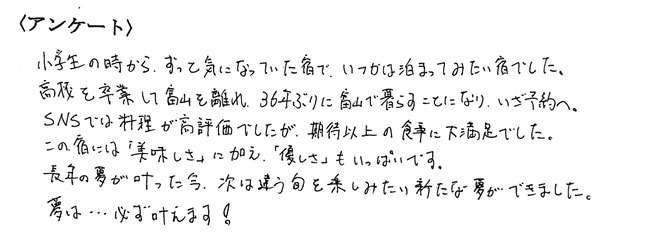 〈アンケート〉
小学生の時から、ずっと気になっていた宿で、いつかは泊まってみたい宿でした。
高校を卒業して富山を離れ、36年ぶりに富山で暮らすことになり、いざ予約へ。
SNSでは料理が高評価でしたが、期待以上の食事に大満足でした。
この宿には「美味しさ」に加え、「優しさ」もいっぱいです。
長年の夢が叶った今、次は違う旬を楽しみたい新たな夢ができました。
夢は…必ず叶えます！